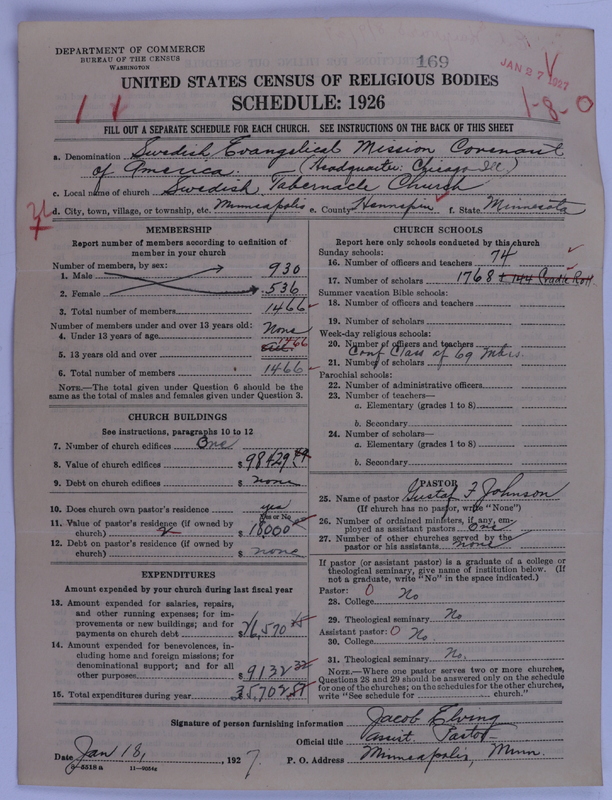 DEPARTMENT OF COMMERCE
BUREAU OF THE CENSUS
WASHINGTON
169
JAN 27 1927
UNITED STATES CENSUS OF RELIGIOUS BODIES
SCHEDULE: 1926
1-8-0
FILL OUT A SEPARATE SCHEDULE FOR EACH CHURCH. SEE INSTRUCTIONS ON THE BACK OF THIS SHEET
a. Denomination Swedish Evangelical Mission Covenant
of America (Headquarter: Chicago Ill.)
c. Local name of church Swedish Tabernacle Church
d. City, town, village, or township, etc. Minneapolis e. County Hennepin f. State Minnesota
MEMBERSHIP
Report number of members according to definition of
member in your church
Number of members, by sex:
1. Male 930
2. Female 536
3. Total number of members 1466
Number of members under and over 13 years old:
4. Under 13 years of age None
5. 13 years old and over 1466
6. Total number of members 1466
NOTE.—The total given under Question 6 should be
same as the total of males and females given under Question 3.
CHURCH BUILDINGS
See instructions, paragraphs 10 to 12
7. Number of church edifices One
8. Value of church edifices $ 98429
9. Debt on church edifices $ none
10. Does church own pastor's residence yes
(Yes or No)
11. Value of pastor's residence (if owned by
church) $ 18000
12. Debt on pastor's residence (if owned by
church) $ none
EXPENDITURES
Amount expended by your church during last fiscal year
13. Amount expended for salaries, repairs,
and other running expenses; for im-
provements or new buildings; and for
payments on church debt $ 26,570
14. Amount expended for benevolences, in-
cluding home and foreign missions; for
denominational support; and for all
other purposes $ 9132
15. Total expenditures during year 35702
CHURCH SCHOOLS
Report here only schools conducted by this church
Sunday schools:
16. Number of officers and teachers 74
17. Number of scholars 1768 + 144 Cradle Roll
Summer vacation Bible schools:
18. Number of officers and teachers
19. Number of scholars
Week-day religious schools:
20. Number of officers and teachers
Conf Class of 69 Mbrs.
21. Number of scholars
Parochial schools:
22. Number of administrative officers
23. Number of teachers—
a. Elementary (grades 1 to 8)
b. Secondary
24. Number of scholars—
a. Elementary (grades 1 to 8)
b. Secondary
PASTOR
25. Name of pastor Gustaf F Johnson
(If church has no pastor, write "None")
26. Number of ordained ministers, if any, em-
ployed as assistant pastors One
27. Number of other churches served by the
pastor or his assistants none
If pastor (or assistant pastor) is a graduate of a college or
theological seminary, give name of institution below. (If
not a graduate, write "No" in the space indicated.)
Pastor: 0
28. College No
29. Theological seminary No
Assistant pastor: 0
30. College No.
31. Theological seminary No.
NOTE.—Where one pastor serves two or more churches,
Questions 28 and 29 should be answered only on the schedule
for one of the churches; on the schedules for the other churches,
write "See schedule for church."
Signature of person furnishing information Jacob Elving
Official title Assist. Pastor
Date Jan 18, 1927. P. O. Address Minneapolis, Minn.
8-5518 a 11-9054a